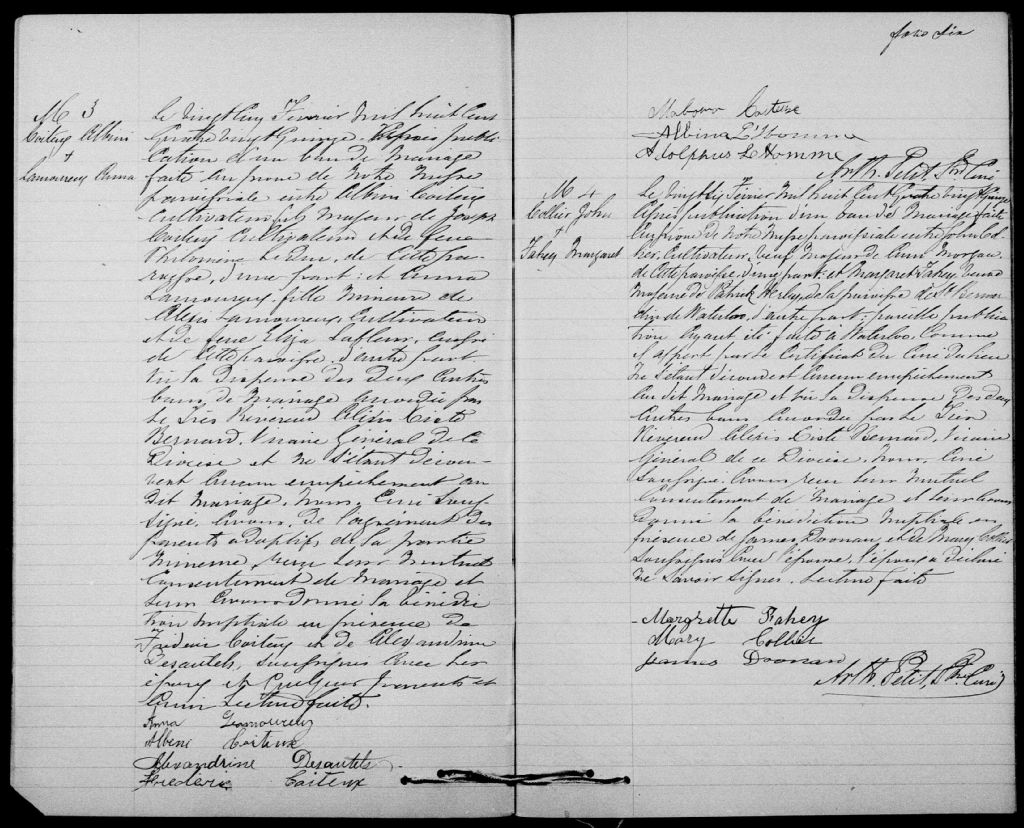 M 3
Coiteux Albini
+
Lamoureux Anna
Le vingt cinq Fevrier mil huit cent
quatre vingt quinze. Après publi-
cation d'un ban de mariage
faite au prone de notre Messe
paroissiale entre Albini Coiteux
cultivateur fils majeur de Joseph
Coiteux cultivateur et de feue
Philomène Leduc, de cette pa-
roisse, d'une part: et Anna
Lamoureux, fille mineure de
Alexis Lamoureux, cultivateur
et de feue Eliza Lafleur, aussi
de cette paroisse, d'autre part
vu la dispense des deux autres
bans de mariage accordée par
le Très Révérend Alexis Xiste
Bernard, Vicaire Général de ce
Diocèse et ne s'étant décou-
vert aucun empêchement au
dit mariage, Nous, Curé sous-
signé, avons, de l'agrément des
parents adoptifs de la partie
mineure, reçu leur mutuel
consentement de mariage et
leur avons donné la bénédic-
tion nuptiale en présence de
Fréderic Coiteux et de Alexandrine
Desautels, soussignés avec les
époux et quelques parents et
amis. Lecture faite.
Anna Lamoureux
Albini Coiteux
Alexandrine Desautels
Frederic Coiteux
folio six
Coiteux
Albina L'Homme
Adolphus L'Homme
Arth. Petit, Ptre Curé
M 4
Collier John
+
Fahey Margaret
Le vingt six Fevrier mil huit cent quatre vingt quinze
Après publication d'un ban de mariage faite
au prone de notre Messe paroissiale entre John Col-
lier, cultivateur, veuf majeur de Ann Morgan,
de cette paroisse, d'une part: et Margaret Fahey, veuve
majeure de Patrick de la paroisse de St Bernar-
din de Waterloo, d'autre part; pareille publica-
tion ayant été faite à Waterloo, comme
il appert par le certificat du Curé du lieu
ne s'étant découvert aucun empêchement
au dit mariage et vu la dispense des deux
autres bans accordée par le Très
Révérend Alexis Xiste Bernard, Vicaire
Général de ce Diocèse. Nous, Curé
soussigné, avons reçu leur mutuel
consentement de mariage et leur avons
donné la bénédiction nuptiale en
présence de James Doonan, et de Mary Collier
soussignés avec l'épouse, l'époux a déclaré
ne savoir signer. Lecture faite
Margrette Fahey
Mary Collier
James Doonan
Arth. Petit, Ptre Curé